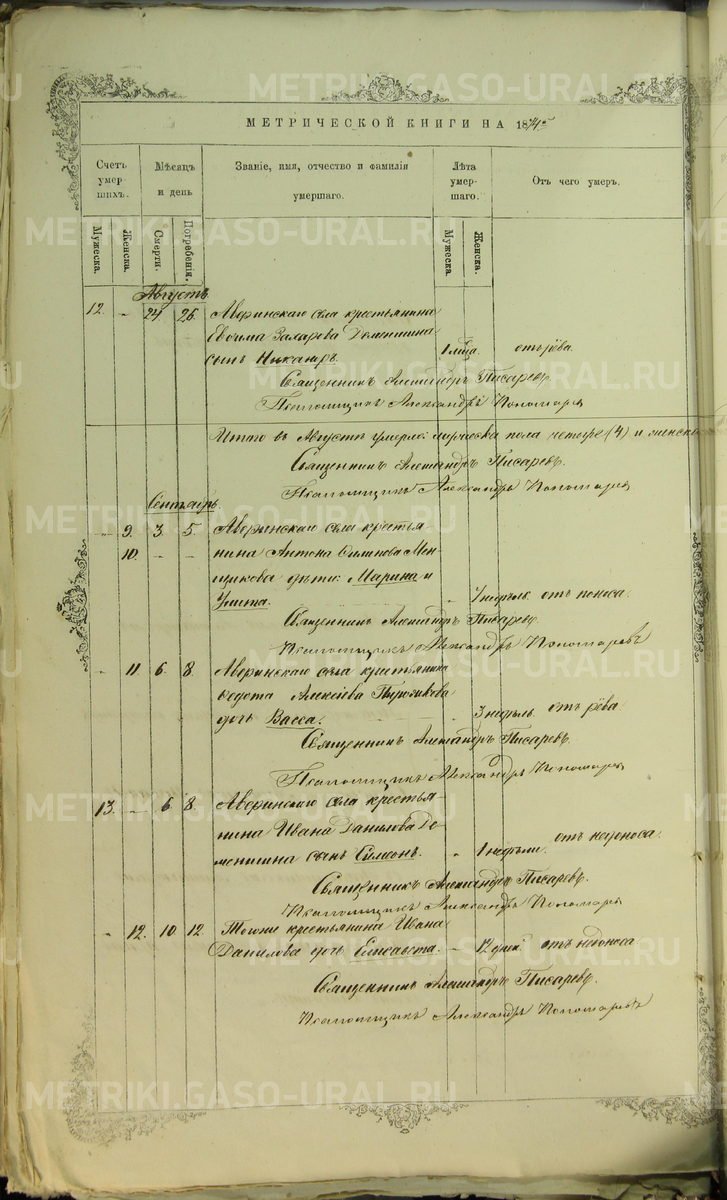 МЕТРИЧЕСКОЙ КНИГИ НА 1874й
Счетъ умершихъ.
Мѣсяцъ и день
Званіе, имя, отчество и фамилія умершаго.
Лѣта умершаго.
Отъ чего умеръ.
Мужеска.
Женска.
Смерти.
Погребенія.
Мужеска.
Женска.
Августъ
12 24 26 Аверинскаго села крестьянина
Евѳима Захарова Доменшина
сынъ Никаноръ. 1 мѣсяца отъ рёва.
Священникъ Александръ Писаревъ.
Псаломщикъ Александръ Пономаревъ
Итого въ Августѣ умерло: мужеска пола четыре (4) и женска
Священникъ Александръ Писаревъ.
Псаломщикъ Александръ Пономаревъ
Сентябрь.
9. 3. 5. Аверинскаго села крестья
10. - - нина Антона Мен-
щикова дѣти: Марина и
Улита. 1 недѣль. отъ поноса.
Священникъ Александръ Писаревъ.
Псаломщикъ Александръ Пономаревъ
11. 6. 8. Аверинскаго села крестьянина
Ѳедота Алексѣева
дочь Васса. 3 недѣль. отъ рёва.
Священникъ Александръ Писаревъ.
Псаломщикъ Александръ Пономаревъ
13. - 6 8. Аверинскаго села крестья-
нина Ивана Данилова До-
меншина сынъ Симеонъ. 1 недѣли. отъ недоноса.
Священникъ Александръ Писаревъ.
Псаломщикъ Александръ Пономаревъ
12. 10 12 Тогоже крестьянина Ивана
Данилова дочь Елисавета. 12 дней отъ недоноса
Священникъ Александръ Писаревъ.
Псаломщикъ Александръ Пономаревъ
METRIKI.GASO-URAL.RU